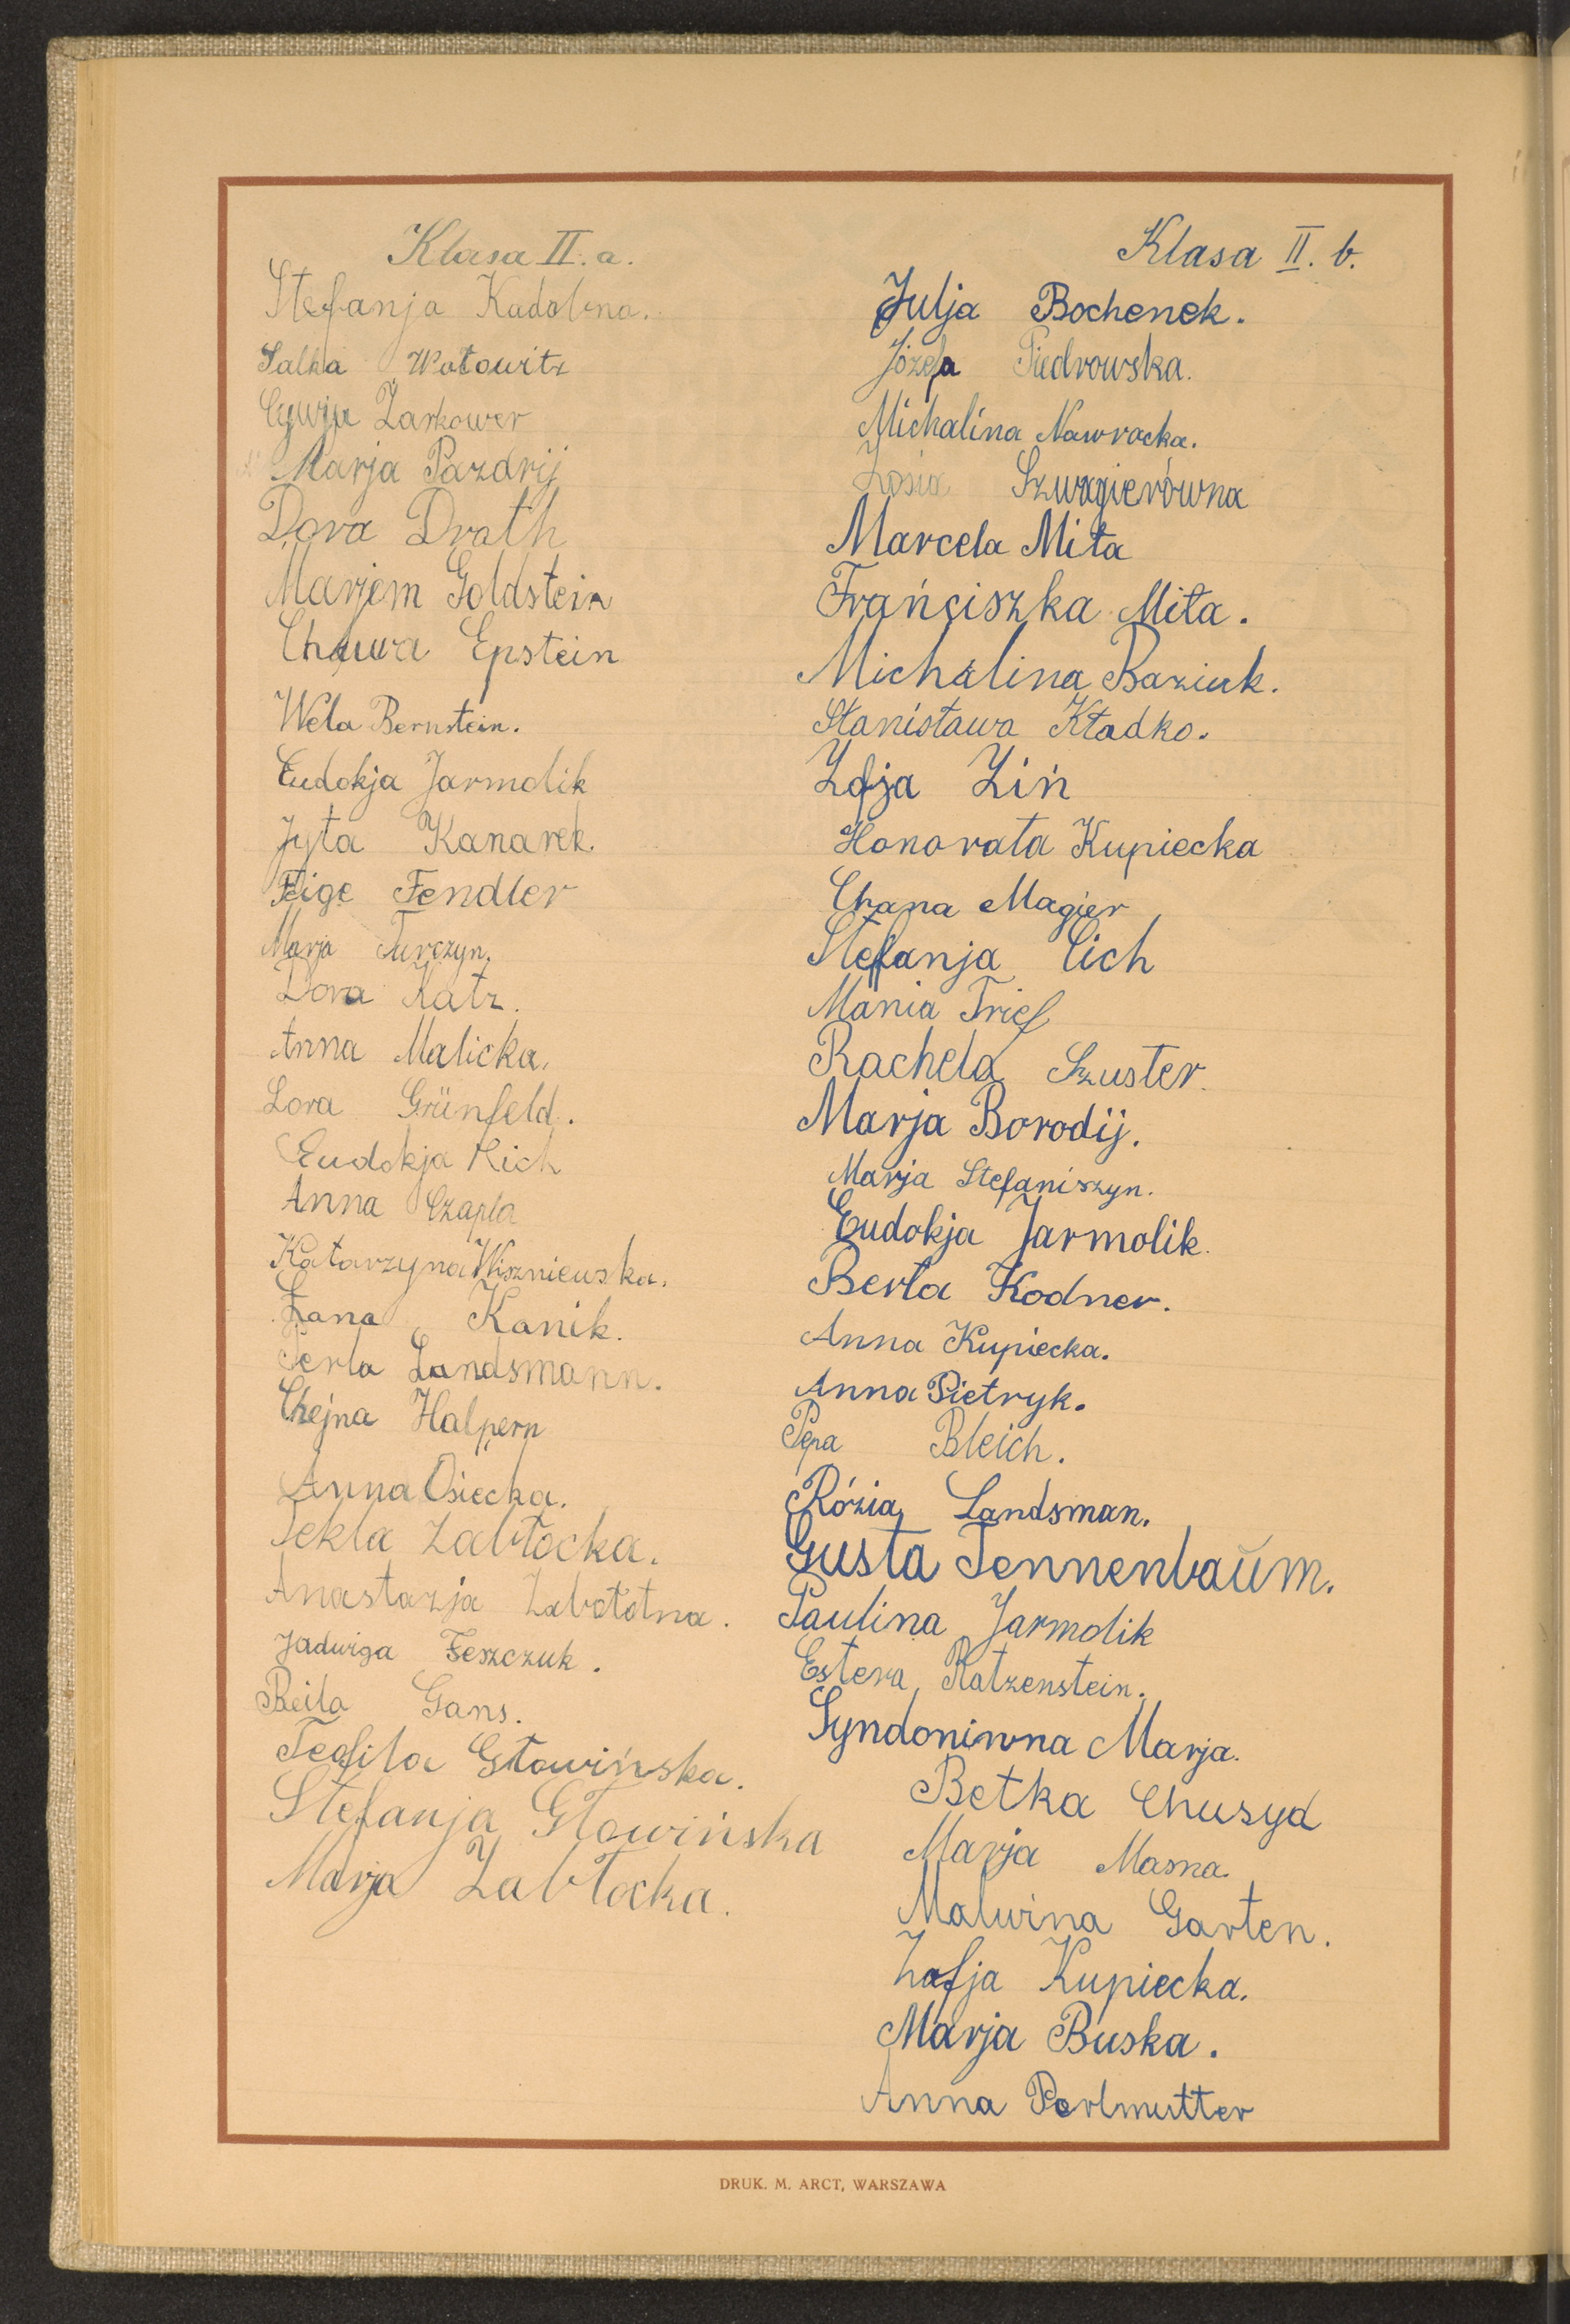 Klasa II. a.
Stefanja Kadobna.
Salka Wołowitz
Cywja Żarkower
Marja Pazdrij
Dora Drath
Marjem Goldstein
Chawa Epstein
Wela Bernstein.
Eudokja Jarmolik
Jyta Kanarek.
Feige Fendler
Marja Turczyn.
Dora Katz.
Anna Malicka.
Lora Grünfeld.
Eudokja Kich
Anna Czapla
Katarzyna Wiszniewska.
Żana Kanik.
Perla Landsmann.
Chejna Halpern
Anna Osiecka.
Tekla Zabłocka.
Anastazja Zabołotna.
Jadwiga Feszczuk.
Beila Gans.
Teofila Głowińska.
Stefanja Głowińska
Marja Zabłocka.
Klasa II. b.
Julja Bochenek.
Józefa Piedrowska.
Michalina Nawrocka.
Zosia Szwagierówna
Marcela Mita
Frańciszka Mita.
Michalina Baziuk.
Stanisława Kładko.
Zofja Ziń
Honorata Kupiecka
Chana Magier
Stefanja Cich
Mania Trief
Rachela Szuster.
Marja Borodij.
Marja Stefaniszyn.
Eudokja Jarmolik.
Berta Kodner.
Anna Kupiecka.
Anna Pietryk.
Pepa Bleich.
Rózia Landsman.
Gusta Tennenbaum.
Paulina Jarmolik
Estera Katzenstein.
Syndoniwna Marja.
Betka Chusyd
Marja Masna.
Malwina Garten.
Zofja Kupiecka.
Marja Buska.
Anna Perlmutter
DRUK. M. ARCT, WARSZAWA